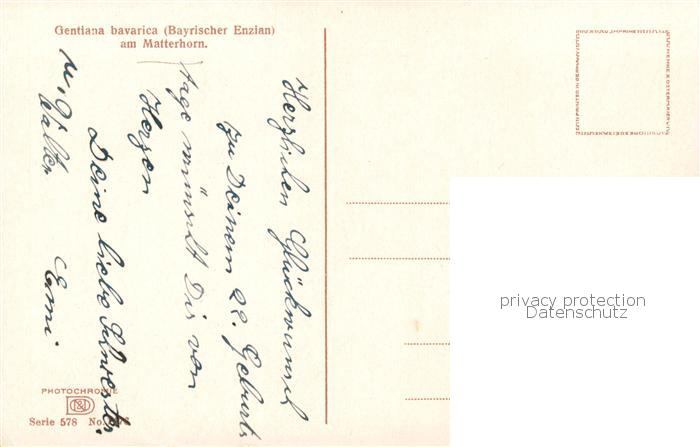 Gentiana bavarica (Bayrischer Enzian)
am Matterhorn.
Herzlichen Glückwunsch
zu Deinem 22. Geburts
tage wünscht Dir von
Herzen
Deine liebe Schwester
Emi.
u. Walter
privacy protection
Datenschutz
PHOTOCHROMIE
Serie 578 No.